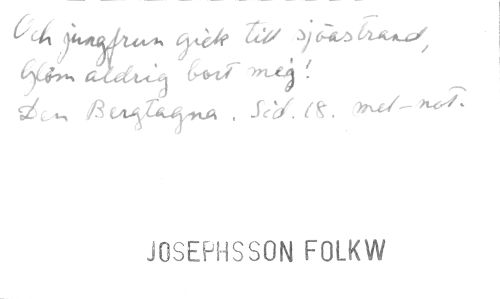 Och jungfrun gick till sjöastrand,
Glöm aldrig bort mig!
Den Bergtagna. Sid. 18. mel-not.
JOSEPHSSON FOLKW